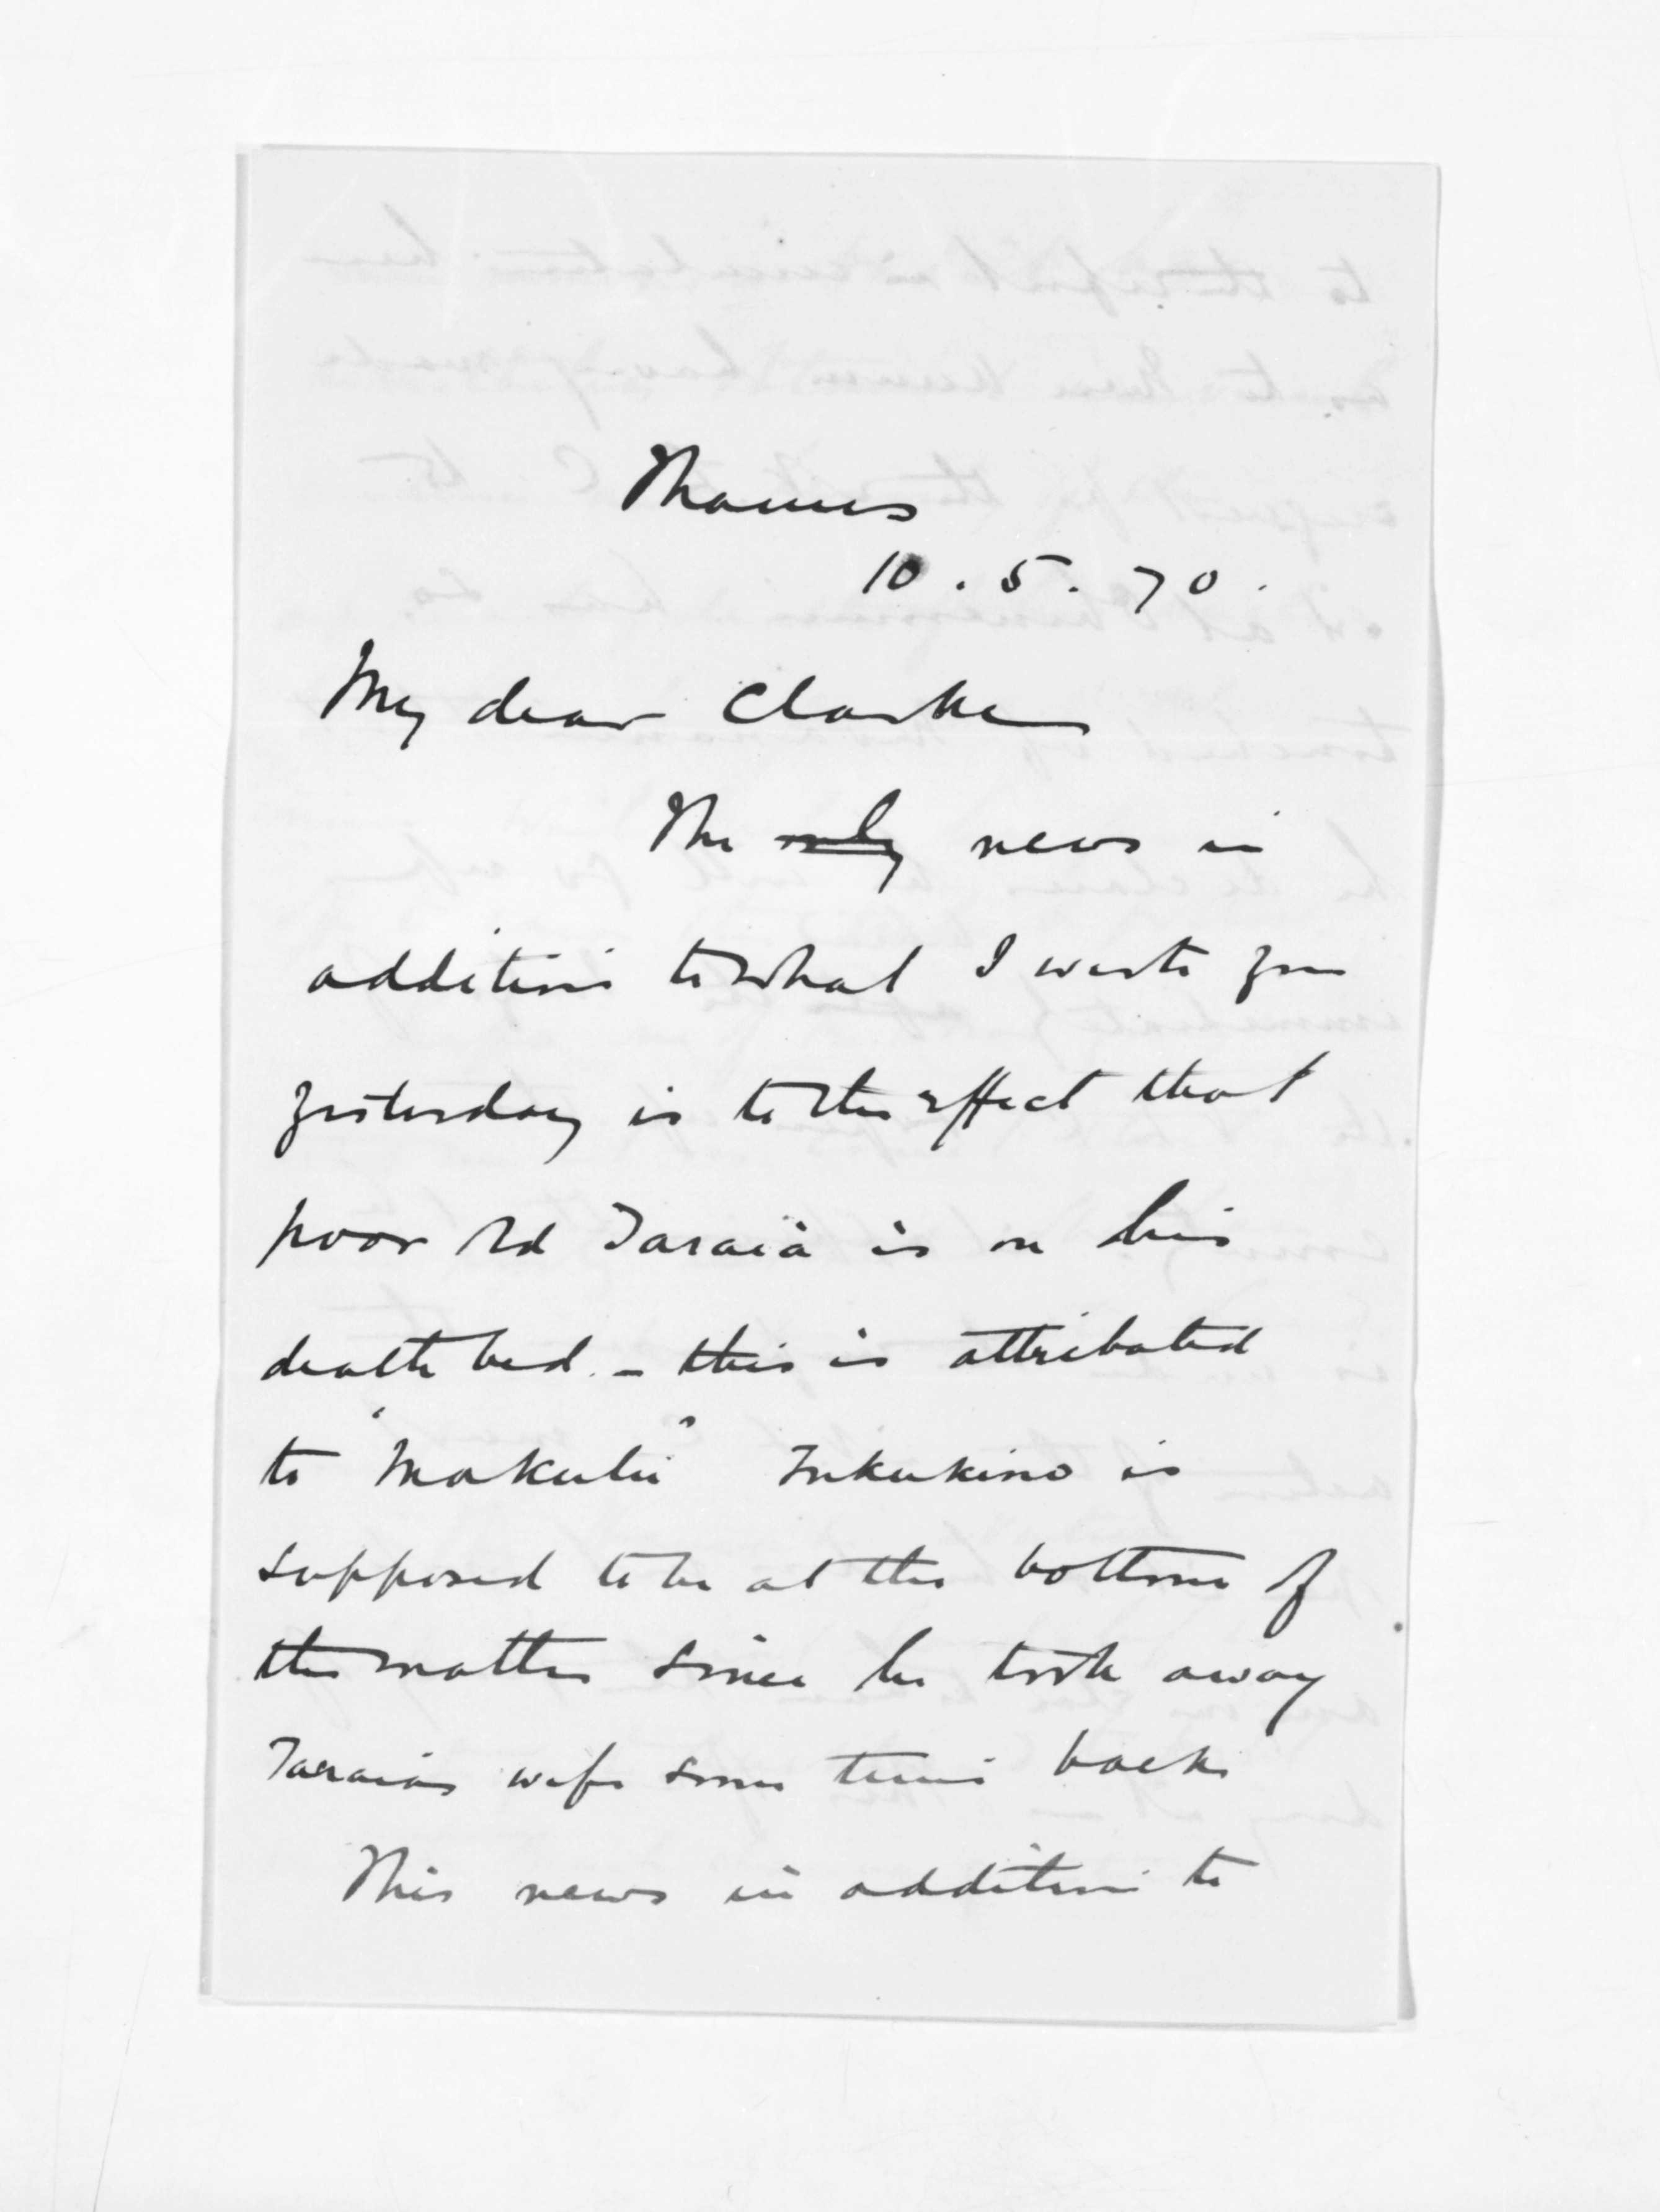 Thames
10. 5. 70.
My dear Clarke
The only news in
addition to what I wrote you
yesterday is to the effect that
poor old Taraia is on his
death bed. - this is attributed
to "Makutu" Tukukino is
supposed to be at the bottom of
the matter since he took away
Taraia's wife some time back
This news in addition to